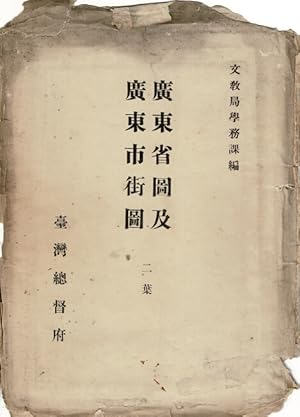 文教局學務課編
廣東省圖及
廣東市街圖
二葉
臺灣總督府